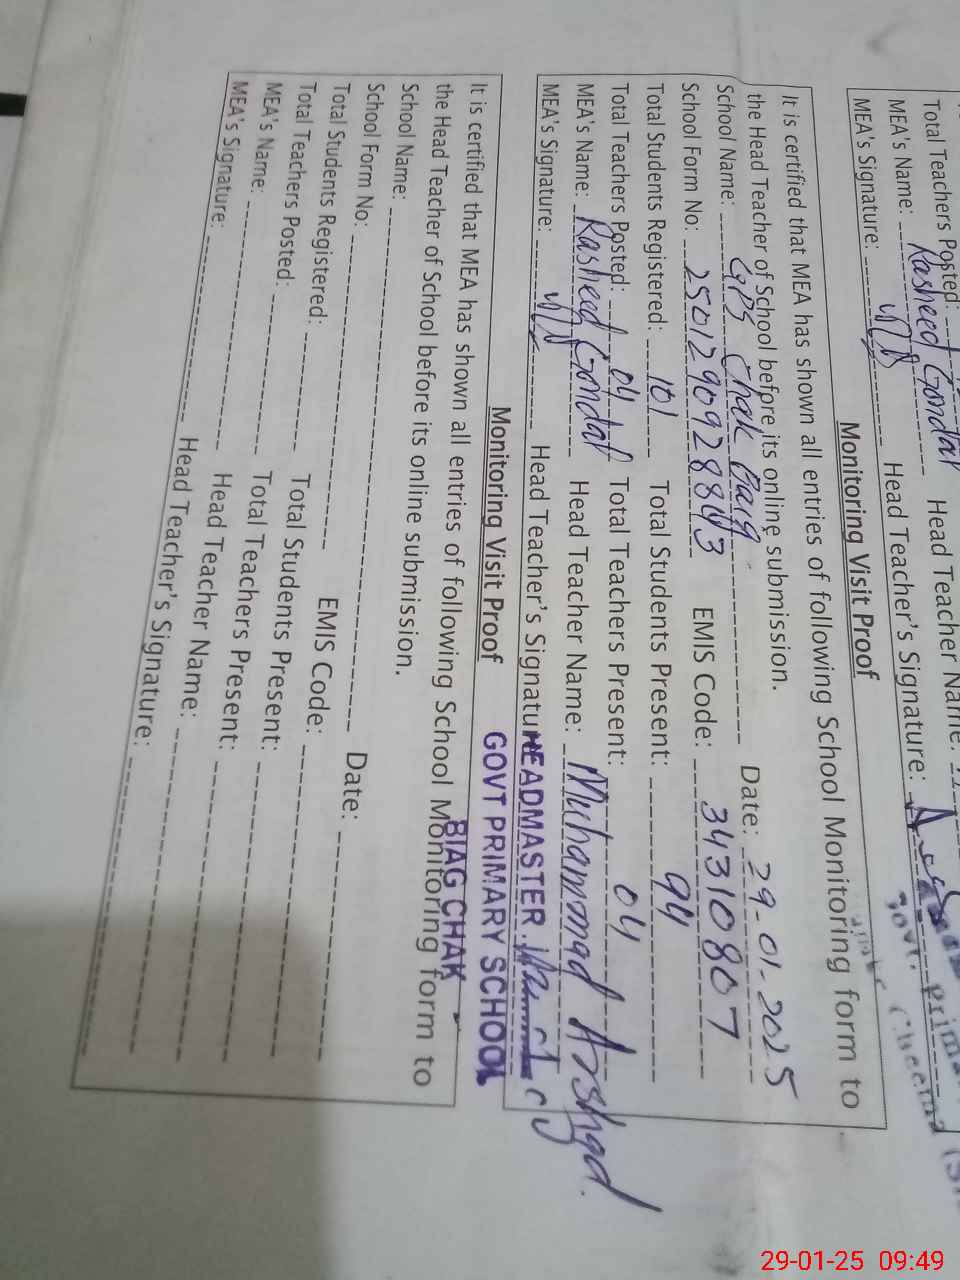 Total Teachers Posted:
MEA's Name: Rasheed Gondal Head Teacher Name:
MEA's Signature: Head Teacher's Signature:
Govt. prim
Cheema
Monitoring Visit Proof
It is certified that MEA has shown all entries of following School Monitoring form to
the Head Teacher of School before its online submission.
School Name: GPS Chak Baig Date: 29-01-2025
School Form No: 25012909288 EMIS Code: 34310807
Total Students Registered: 101 Total Students Present: 94
Total Teachers Posted: 04 Total Teachers Present: 04
MEA's Name: Rasheed Gondal Head Teacher Name: Muhammad Arshad
MEA's Signature: Head Teacher's Signatu
HEADMASTER
GOVT PRIMARY SCHOOL
BIAG CHAK
Monitoring Visit Proof
It is certified that MEA has shown all entries of following School Monitoring form to
the Head Teacher of School before its online submission.
School Name: Date:
School Form No: EMIS Code:
Total Students Registered: Total Students Present:
Total Teachers Posted: Total Teachers Present:
MEA's Name: Head Teacher Name:
MEA's Signature: Head Teacher's Signature:
29-01-25 09:49